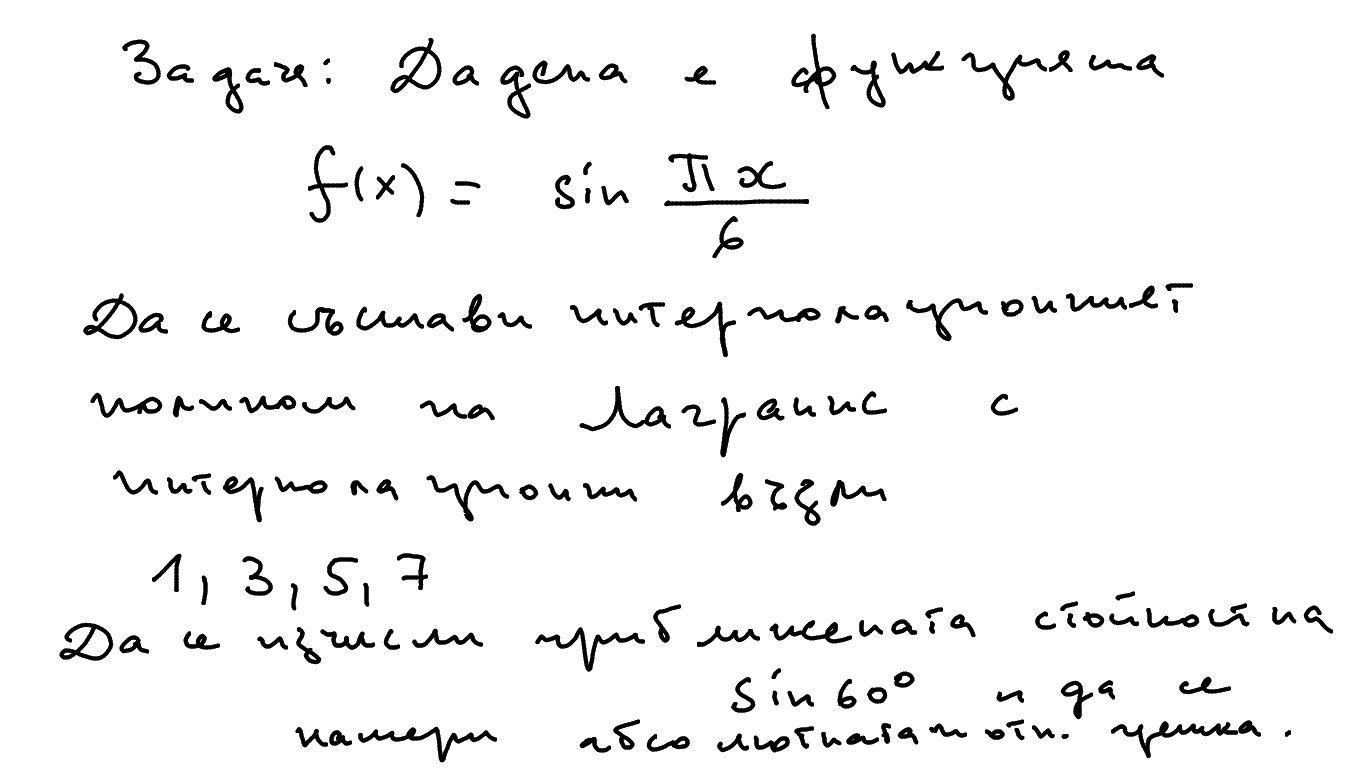 Задача: Дадена е функцията
f(x) = sin πx/6
Да се състави интерполационният
полином на Лагранж с
интерполационни възли
1, 3, 5, 7
Да се изчисли приближената стойност на
sin 60° и да се
намери абсолютната и отн. грешка.